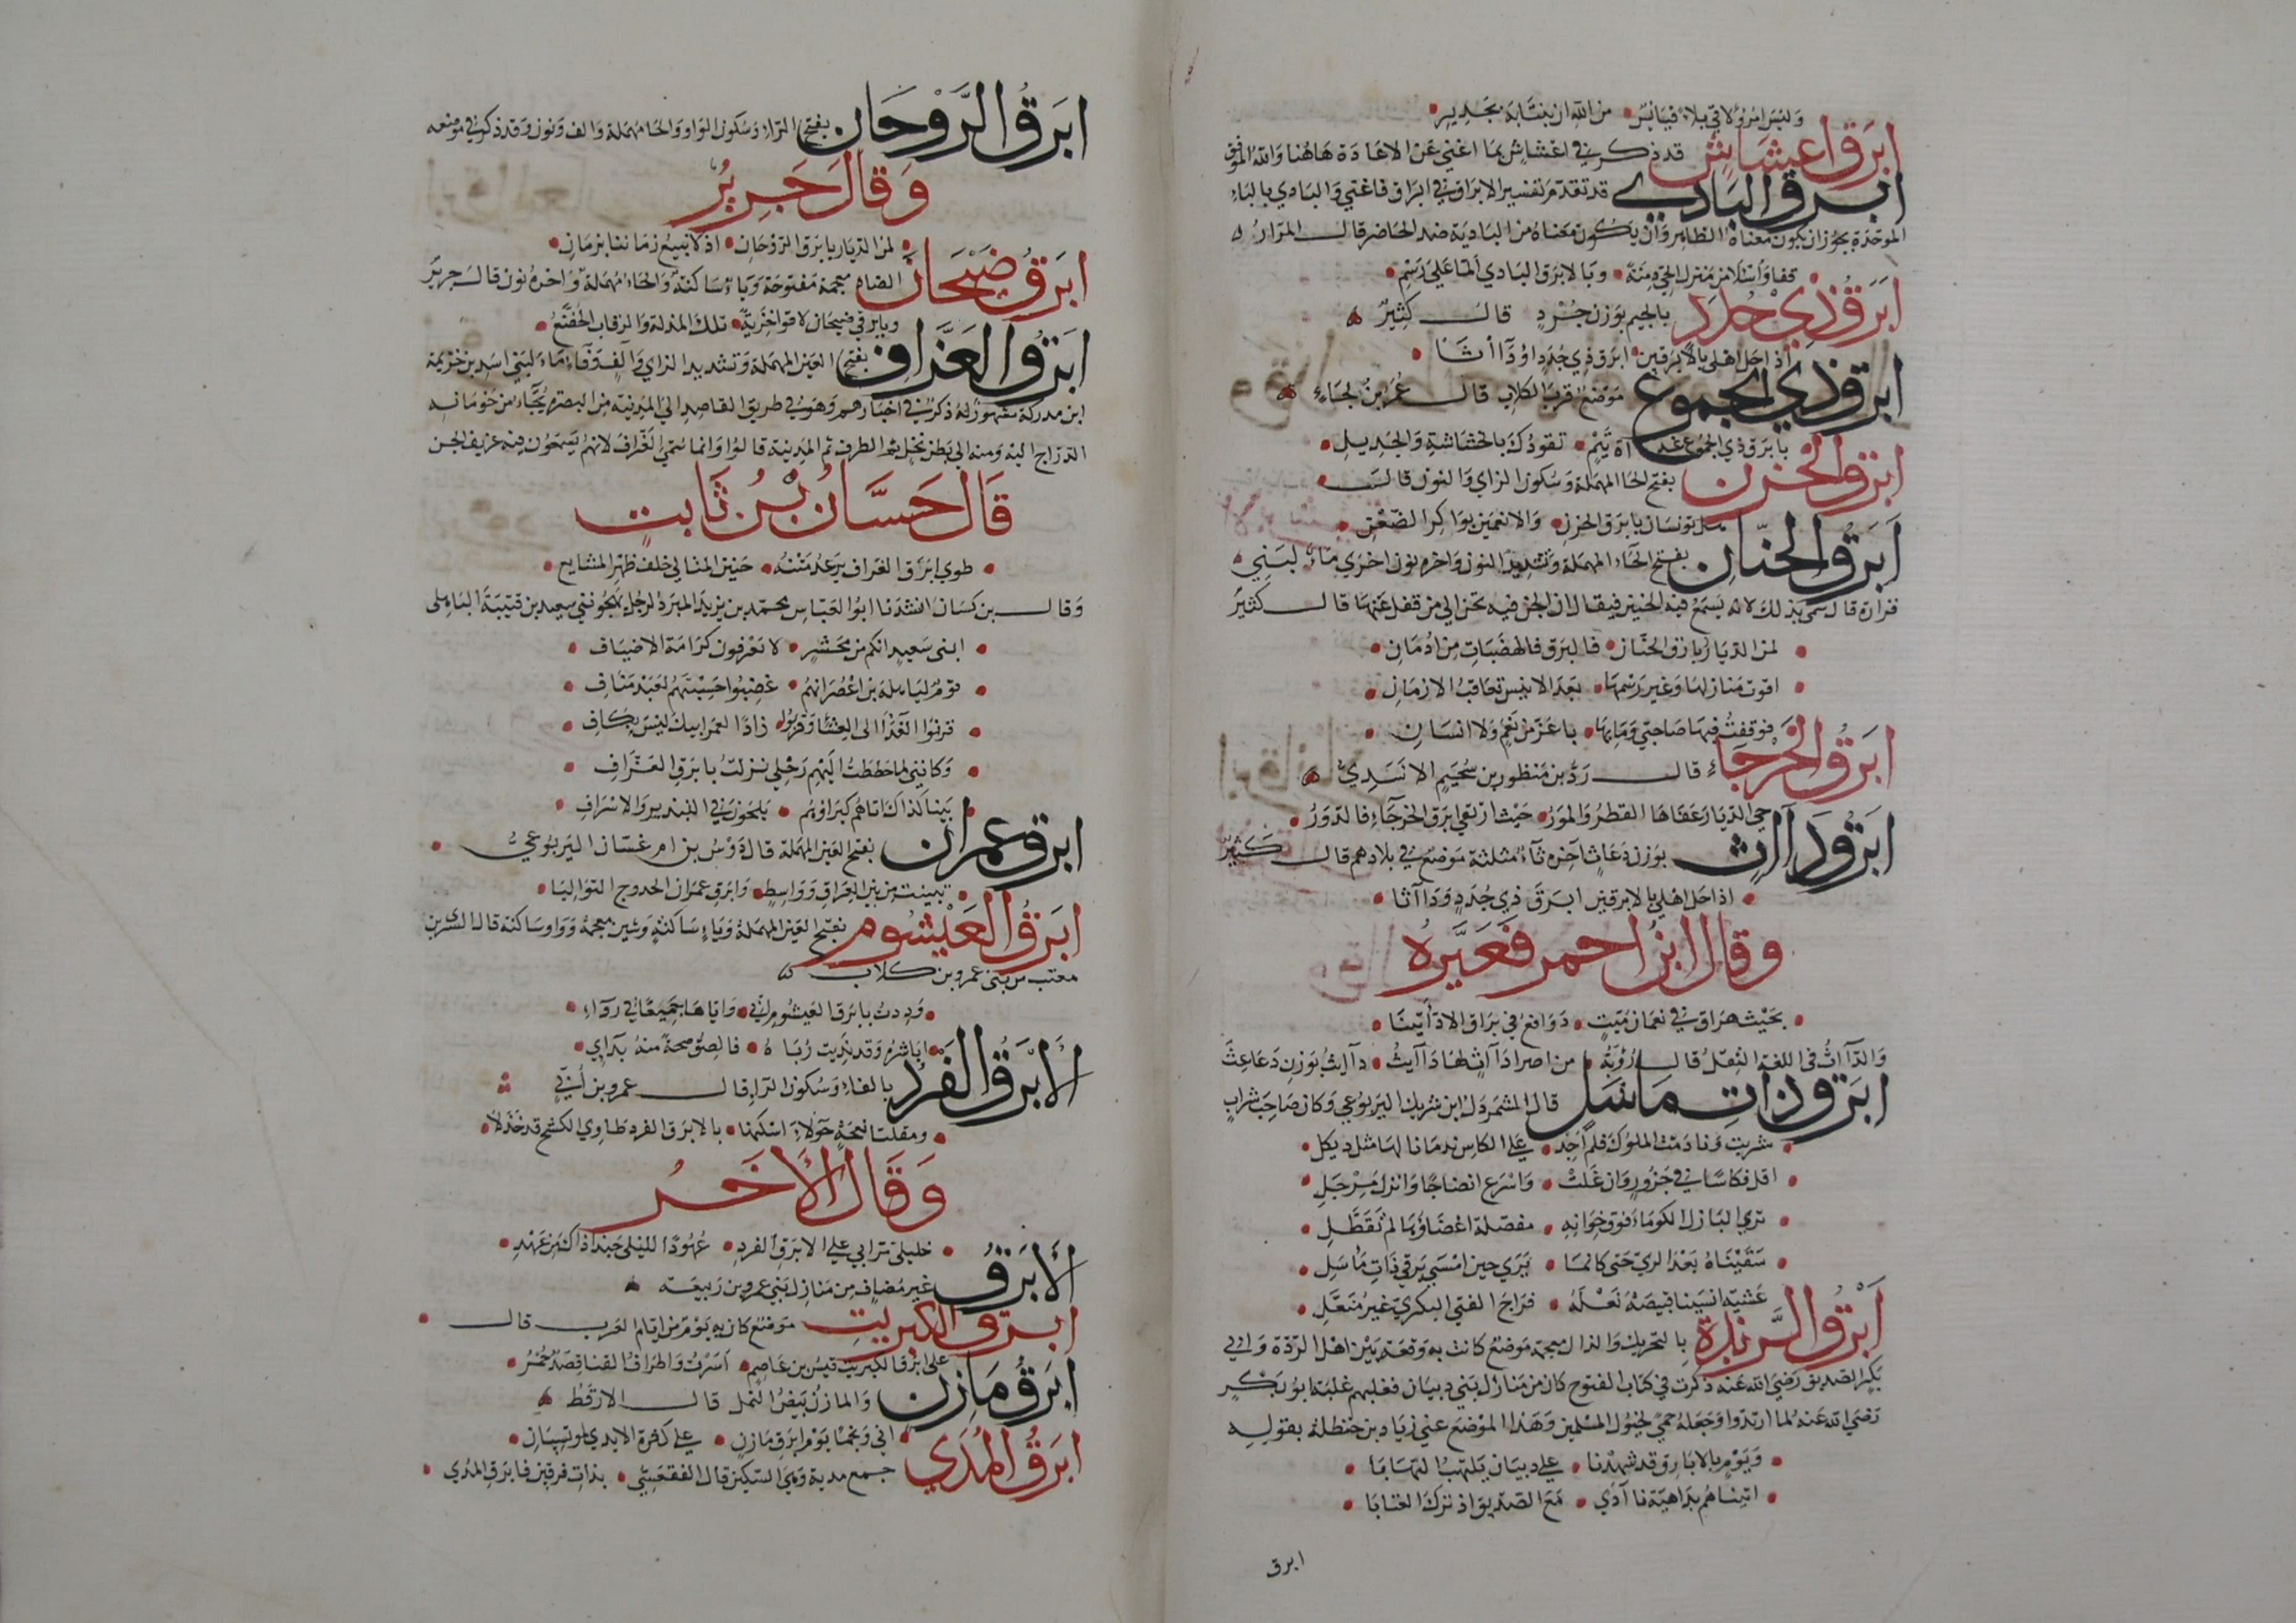 وليس امرؤ لاقى بلاء فيائس من الله ان ينتابه بجدير
ابرق اعشاش قد ذكر في اعشاش بما اغني عن الاعادة هاهنا والله الموفق
ابرق البادي قد تقدم تفسير الابراق في ابراق فاغني والبادي بالباء
الموحدة يجوز ان يكون معناه الظاهر وان يكون معناه من البادية ضد الحاضر قال المرار
قفا واسئلا من منزل الحي دمنة وبالابرق البادي الما على رسم
ابرق ذي جدد بالجيم بوزن جرد قال كثير
اذا حل اهلي بالابرقين ابرق ذي جدد او دآأثا
ابرق ذي الجموع موضع قرب الكلاب قال عمر بن لجاء
بابرق ذي الجموع غداة تيم تقودك بالخشاشة والجديل
ابرق الحزن بفتح الحا المهملة وسكون الزاي والنون قال
هل تونسان بابرق الحزن والانعمين بواكر الظعن
ابرق الحنان بفتح الحاء المهملة وتشديد النون واخره نون اخرى ماء لبني
فزارة قال سمي بذلك لانه يسمع فيه الحنين فيقال ان الجن فيه تحن الى من قفل عنها قال كثير
لمن الديار بابرق الحنان فالبرق فالهضبات من ادمان
اقوت منازلها وغير رسمها بعد الانيس تعاقب الازمان
فوقفت فيها صاحبي وما بها يا عز من نعم ولا انسان
ابرق الخرجاء قال رد بن منظور بن سحيم الاسدي
حي الديار عفاها القطر والمور حيث ارتقى ابرق الخرجاء فالدور
ابرق دآاث بوزن دعاث اخره ثاء مثلثة موضع في بلادهم قال كثير
اذا حل اهلي بالابرقين ابرق ذي جدد ودآاثا
وقال ابن احمر فغيره
بحيث هراق في نعمان ميث دوافع في براق الادأثينا
والدآاث في اللغة الثقل قال رؤبة من اصر ادآاث لها دآايث دآايث بوزن دعاعث
ابرق ذات مأسل قال الشمردل بن شريك اليربوعي وكان صاحب شراب
شربت ونادمت الملوك فلم اجد على الكاس ندمانا لها مثل ديكل
اقل مكاسا في جزور وان غلت واسرع انضاجا وانزل مرجل
ترى البازل الكوماء فوق خوانه مفصلة اعضاؤها لم تفصل
سقيناه بعد الري حتى كانما يرى حين امسى برقي ذات مأسل
عشية انسينا قبيصة نعله فراح الفتى البكري غير منعل
ابرق الربذة بالتحريك والذال معجمة موضع كانت به وقعة بين اهل الردة وابي
بكر الصديق رضي الله عنه ذكرت في كتاب الفتوح كان من منازل بني ذبيان فغلبهم عليه ابو بكر
رضي الله عنه لما ارتدوا وجعله حمى لخيول المسلمين وهذا الموضع عني زياد بن حنظلة بقوله
ويوم بالابارق قد شهدنا على ذبيان يلتهب التهابا
اتيناهم بداهية نآدى مع الصديق اذ ترك العتابا
ابرق
ابرق الروحان بفتح الراء وسكون الواو والحا مهملة والف ونون وقد ذكر في موضعه
وقال جرير
لمن الديار بابرق الروحان اذ لا نبيع زماننا بزمان
ابرق ضبحان الضاد معجمة مفتوحة وباء ساكنة والحاء مهملة واخره نون قال جرير
وبابرقي ضيحان لاقوا خزية تلك المذلة والرقاب الخضع
ابرق العزاف بفتح العين المهملة وتشديد الزاي والف وفاء ماء لبني اسد بن خزيمة
ابن مدركة مشهور له ذكر في اخبارهم وهو في طريق القاصد الى المدينة من البصرة يجاء من حومانة
الدراج اليه ومنه الى بطن نخل ثم الطرف ثم المدينة قالوا وانما سمي العزاف لانهم يسمعون فيه عزيف الجن
قال حسان بن ثابت
طوى ابرق العزاف يرعد متنه حنين المتالي خلف ظهر المشايع
وقال بن كسان انشدنا ابو العباس محمد بن يزيد المبرد لرجل يهجو بني سعيد بن قتيبة الباهلى
ابنى سعيد انكم من معشر لا تعرفون كرامة الاضياف
قوم لباهلة بن اعصر انهم غضبوا حسبتهم لعبد مناف
قرنوا الغدا الى العشا وقربوا زادا لعمر ابيك ليس بكاف
وكانني لما حططت اليهم رحلي نزلت بابرق العزاف
بينا كذاك اتاهم كبراؤهم يلحون في التبذير والاسراف
ابرق عمران بفتح العين المهملة قال دوس بن ام غسان اليربوعي
تبينت من بين العراق وواسط وابرق عمران الحدوج التواليا
ابرق العيشوم بفتح العين المهملة وياء ساكنة وشين معجمة وواو ساكنة قال السري بن
معتب من بنى عمرو بن كلاب
وددت بابرق العيشوم اني واياها جميعا في رداء
اباشره وقد نديت رباه فالصق صحة منه بدآي
الابرق الفرد بالفاء وسكون الراء قال عمرو بن أبي
ومقلتا نعجة حولاء اسكنها بالابرق الفرد طاوي الكشح قد خذلا
وقال الاخر
خليلي ترابي على الابرق الفرد عهودا لليلى حبذا ذاك من عهد
الابرق غير مضاف من منازل بني عمرو بن ربيعة
ابرق الكبريت موضع كان به يوم من ايام العرب قال
على ابرق الكبريت قيس بن عاصم اسرت واطراف القنا قصد حمر
ابرق مازن والمازن بيض النمل قال الارقط
اني ونجما يوم ابرق مازن على كثرة الايدي لموتسيان
ابرق المدي جمع مدية وهي السكين قال الفقعسي بذات فرقين فابرق المدي